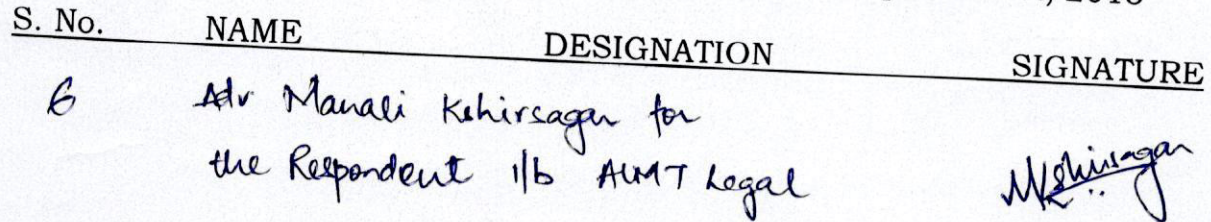 2018
S. No. NAME DESIGNATION SIGNATURE
6 Adv Manali Kshirsagar for
the Respondent i/b ALMT Legal
MKshirsagar